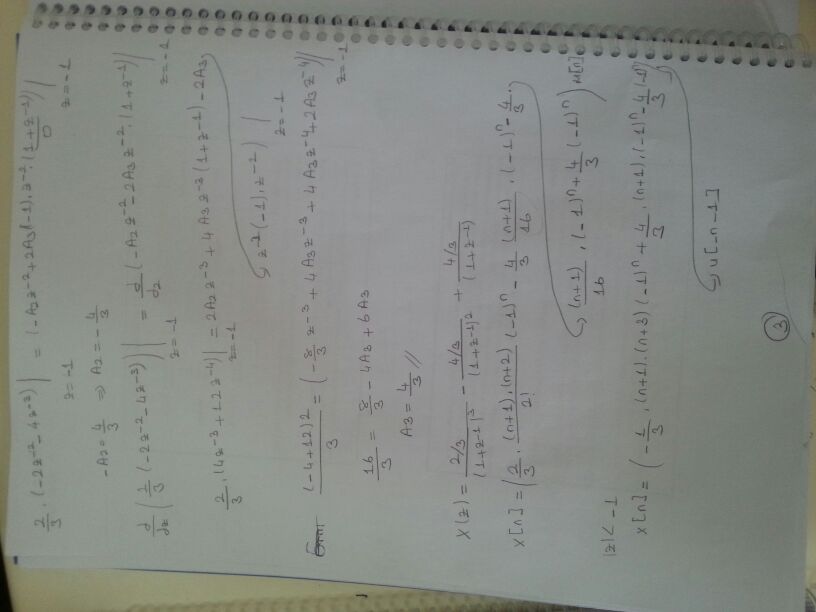 2/3 . (-2z^-2 - 4z^-3) | z=-1 = (-A2z^-2 + 2A3(-1).z^-2.(1+z^-1)) | z=-1
0
-A2 = 4/3 ⇒ A2 = -4/3
d/dz (1/3 (-2z^-2 - 4z^-3)) | z=-1 = d/dz (-A2z^-2 - 2A3z^-2.(1+z^-1)) | z=-1
2/3 . (4z^-3 + 12z^-4) | z=-1 = 2A2z^-3 + 4A3z^-3(1+z^-1) - 2A3
z^-2(-1).z^-2 | z=-1
(-4+12)2/3 = (-8/3 z^-3 + 4A3z^-3 + 4A3z^-4 + 2A3z^-4) | z=-1
16/3 = 8/3 - 4A3 + 6A3
A3 = 4/3 //
X(z) = 2/3/(1+z^-1)^3 - 4/3/(1+z^-1)^2 + 4/3/(1+z^-1)
x[n] = (2/3 . (n+1).(n+2)/2! (-1)^n - 4/3 (n+1)/16 . (-1)^n - 4/3 .
(n+1)/16 . (-1)^n + 4/3 (-1)^n) u[n]
|z| < -1
x[n] = (-1/3 . (n+1).(n+3)(-1)^n + 4/3 . (n+1).(-1)^n - 4/3 (-1)^n)
u[-n-1]
3